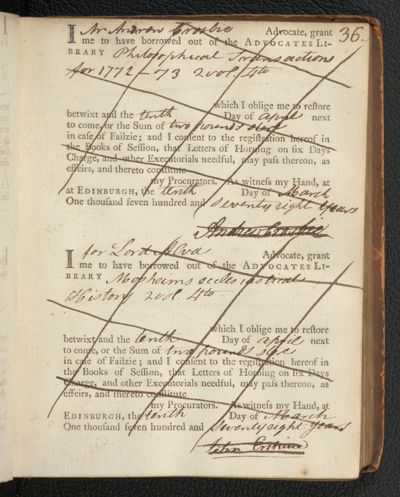 36.
I Mr Andrew Crosbie Advocate, grant
me to have borrowed out of the ADVOCATES LI-
BRARY Philosophical Transactions
for 1772-73 2 vol. 4to
which I oblige me to reſtore
betwixt and the tenth Day of april next
to come, or the Sum of two pounds ster
in caſe of Failzie; and I conſent to the regiſtration hereof in
the Books of Seſſion, that Letters of Horning on ſix Days
Charge, and other Executorials needful, may paſs thereon, as
effeirs, and thereto conſtitute
my Procurators. As witneſs my Hand, at
at EDINBURGH, the tenth Day of March
One thouſand ſeven hundred and seventy eight years
Andrew Crosbie
I for Lord Alva Advocate, grant
me to have borrowed out of the ADVOCATES LI-
BRARY Mosheims ecclesiastical
History 2 vol. 4to
which I oblige me to reſtore
betwixt and the tenth Day of april next
to come, or the Sum of two pounds ster
in caſe of Failzie; and I conſent to the regiſtration hereof in
the Books of Seſſion, that Letters of Horning on ſix Days
Charge, and other Executorials needful, may paſs thereon, as
effeirs, and thereto conſtitute
my Procurators. As witneſs my Hand, at
EDINBURGH, the tenth Day of March
One thouſand ſeven hundred and seventy eight years
Erskine